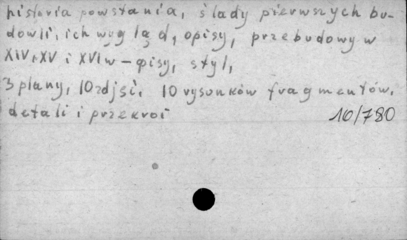 historia powstania, ślady pierwszych bu-
dowli, ich wygląd, opisy, przebudowy w
XIV i XV i XVI w - opisy, styl,
3 plany, 10 zdjęć, 10 rysunków fragmentów,
detali i przekroi
16/780